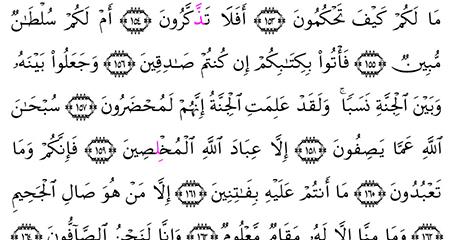 مَا لَكُمْ كَيْفَ تَحْكُمُونَ ﴿١٥٤﴾ أَفَلَا تَذَكَّرُونَ ﴿١٥٥﴾ أَمْ لَكُمْ سُلْطَانٌ
مُّبِينٌ ﴿١٥٦﴾ فَأْتُوا بِكِتَابِكُمْ إِن كُنتُمْ صَادِقِينَ ﴿١٥٧﴾ وَجَعَلُوا بَيْنَهُ
وَبَيْنَ الْجِنَّةِ نَسَبًا ۚ وَلَقَدْ عَلِمَتِ الْجِنَّةُ إِنَّهُمْ لَمُحْضَرُونَ ﴿١٥٨﴾ سُبْحَانَ
اللَّهِ عَمَّا يَصِفُونَ ﴿١٥٩﴾ إِلَّا عِبَادَ اللَّهِ الْمُخْلِصِينَ ﴿١٦٠﴾ فَإِنَّكُمْ وَمَا
تَعْبُدُونَ ﴿١٦١﴾ مَا أَنتُمْ عَلَيْهِ بِفَاتِنِينَ ﴿١٦٢﴾ إِلَّا مَنْ هُوَ صَالِ الْجَحِيمِ
وَمَا مِنَّا إِلَّا لَهُ مَقَامٌ مَّعْلُومٌ وَإِنَّا لَنَحْنُ الصَّافُّونَ